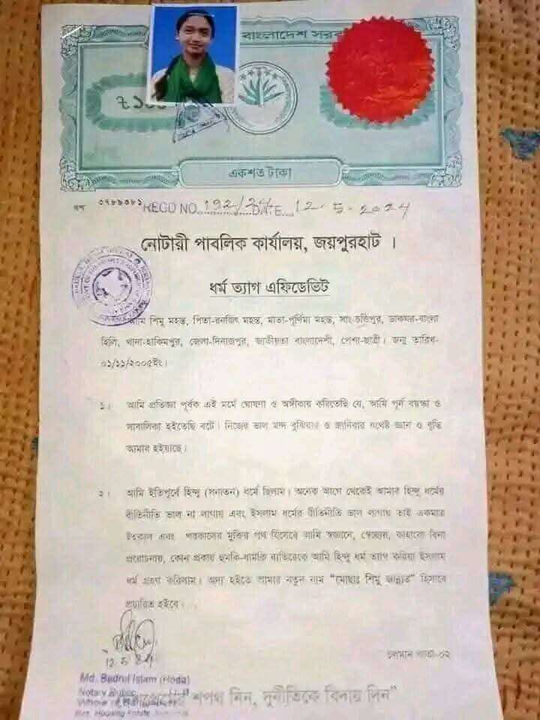 বাংলাদেশ সরকার
৳১০০
একশত টাকা
REGD NO. 192/24 DATE 12-5-2024
নোটারী পাবলিক কার্যালয়, জয়পুরহাট ।
ধর্ম ত্যাগ এফিডেভিট
আমি শিমু মহন্ত, পিতা-রনজিৎ মহন্ত, মাতা-পূর্ণিমা মহন্ত, সাং-চন্ডিপুর, ডাকঘর-বাংলা
হিলি, থানা-হাকিমপুর, জেলা-দিনাজপুর, জাতীয়তা বাংলাদেশী, পেশা-ছাত্রী। জন্ম তারিখ-
০১/১১/২০০৫ইং।
১। আমি প্রতিজ্ঞা পূর্বক এই মর্মে ঘোষণা ও অঙ্গীকার করিতেছি যে, আমি পূর্ন বয়স্কা ও
সাবালিকা হইতেছি বটে। নিজের ভাল মন্দ বুঝিবার ও জানিবার যথেষ্ট জ্ঞান ও বুদ্ধি
আমার হইয়াছে।
২। আমি ইতিপূর্বে হিন্দু (সনাতন) ধর্মে ছিলাম। অনেক আগে থেকেই আমার হিন্দু ধর্মের
রীতিনীতি ভাল না লাগায় এবং ইসলাম ধর্মের রীতিনীতি ভাল লাগায় তাই একমাত্র
ইহকাল এবং পরকালের মুক্তির পথ হিসেবে আমি স্বজ্ঞানে, স্বেচ্ছায়, কাহারো বিনা
প্ররোচনায়, কোন প্রকার হুমকি-ধামকি ব্যতিরেকে আমি হিন্দু ধর্ম ত্যাগ করিয়া ইসলাম
ধর্ম গ্রহণ করিলাম। অদ্য হইতে আমার নতুন নাম "মোছাঃ শিমু জান্নাত" হিসাবে
প্রচারিত হইবে।
12.5.24
চলমান পাতা-০২
Md. Badrul Islam (Hoda)
Notary Public
শপথ নিন, দুর্নীতিকে বিদায় দিন"